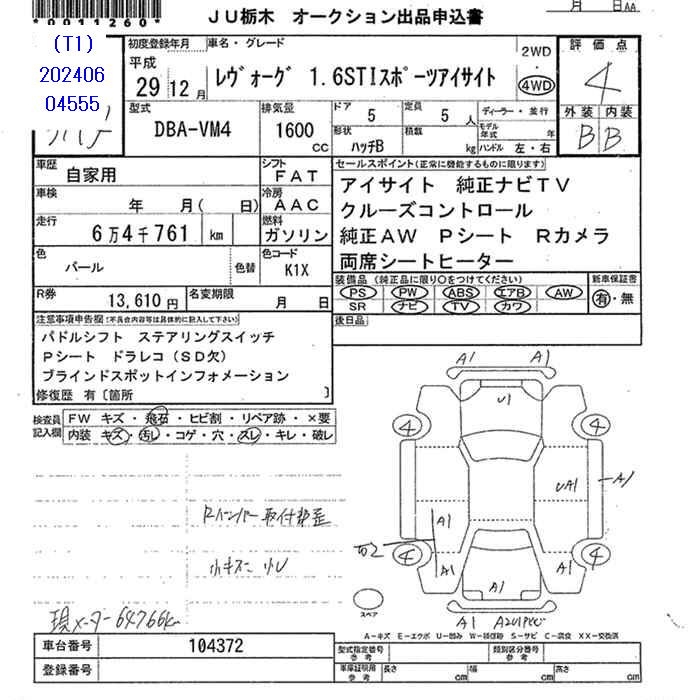 *0011260*
JU栃木 オークション出品申込書
月 日AA
(T1)
202406
04555
初度登録年月 車名・グレード
平成
29 12月 レヴォーグ 1.6STIスポーツアイサイト
2WD
4WD
評価点
4
型式 DBA-VM4
排気量 1600 CC
ドア 5
定員 5人
ディーラー・並行
形状 ハッチB
積載 kg
モデル年式 年
ハンドル 左・右
外装 内装
B B
車歴 自家用
シフト FAT
車検 年 月( 日)
冷房 AAC
走行 6万4千761 km
燃料 ガソリン
色 パール 色替
色コード K1X
R券 13,610円
名変期限 月 日
セールスポイント(正常に機能するものに限ります)
アイサイト 純正ナビTV
クルーズコントロール
純正AW Pシート Rカメラ
両席シートヒーター
装備品(純正品に限り○をつけてください)
PS PW ABS エアB AW
SR ナビ TV カワ
新車保証書
有・無
後日品
注意事項申告欄(不具合内容等は具体的に記入して下さい)
パドルシフト ステアリングスイッチ
Pシート ドラレコ(SD欠)
ブラインドスポットインフォメーション
修復歴 有〔箇所 〕
検査員記入欄
FW キズ・飛石・ヒビ割・リペア跡・×要
内装 キズ・汚レ・コゲ・穴・スレ・キレ・破レ
Rバンパー取付部歪
小キズ 小U
現メーター64766k
A1 A1
U1
4 4
UA1 A1
A1
A1 A1
4 4
A1
スペア
A1
A-キズ E-エクボ U-凹み W-補修跡 S-サビ C-腐食 XX-交換済
車台番号 104372
登録番号
型式指定番号 参考
類別区分番号 参考
車庫証明用 参考 長さ cm 幅 cm 高さ cm